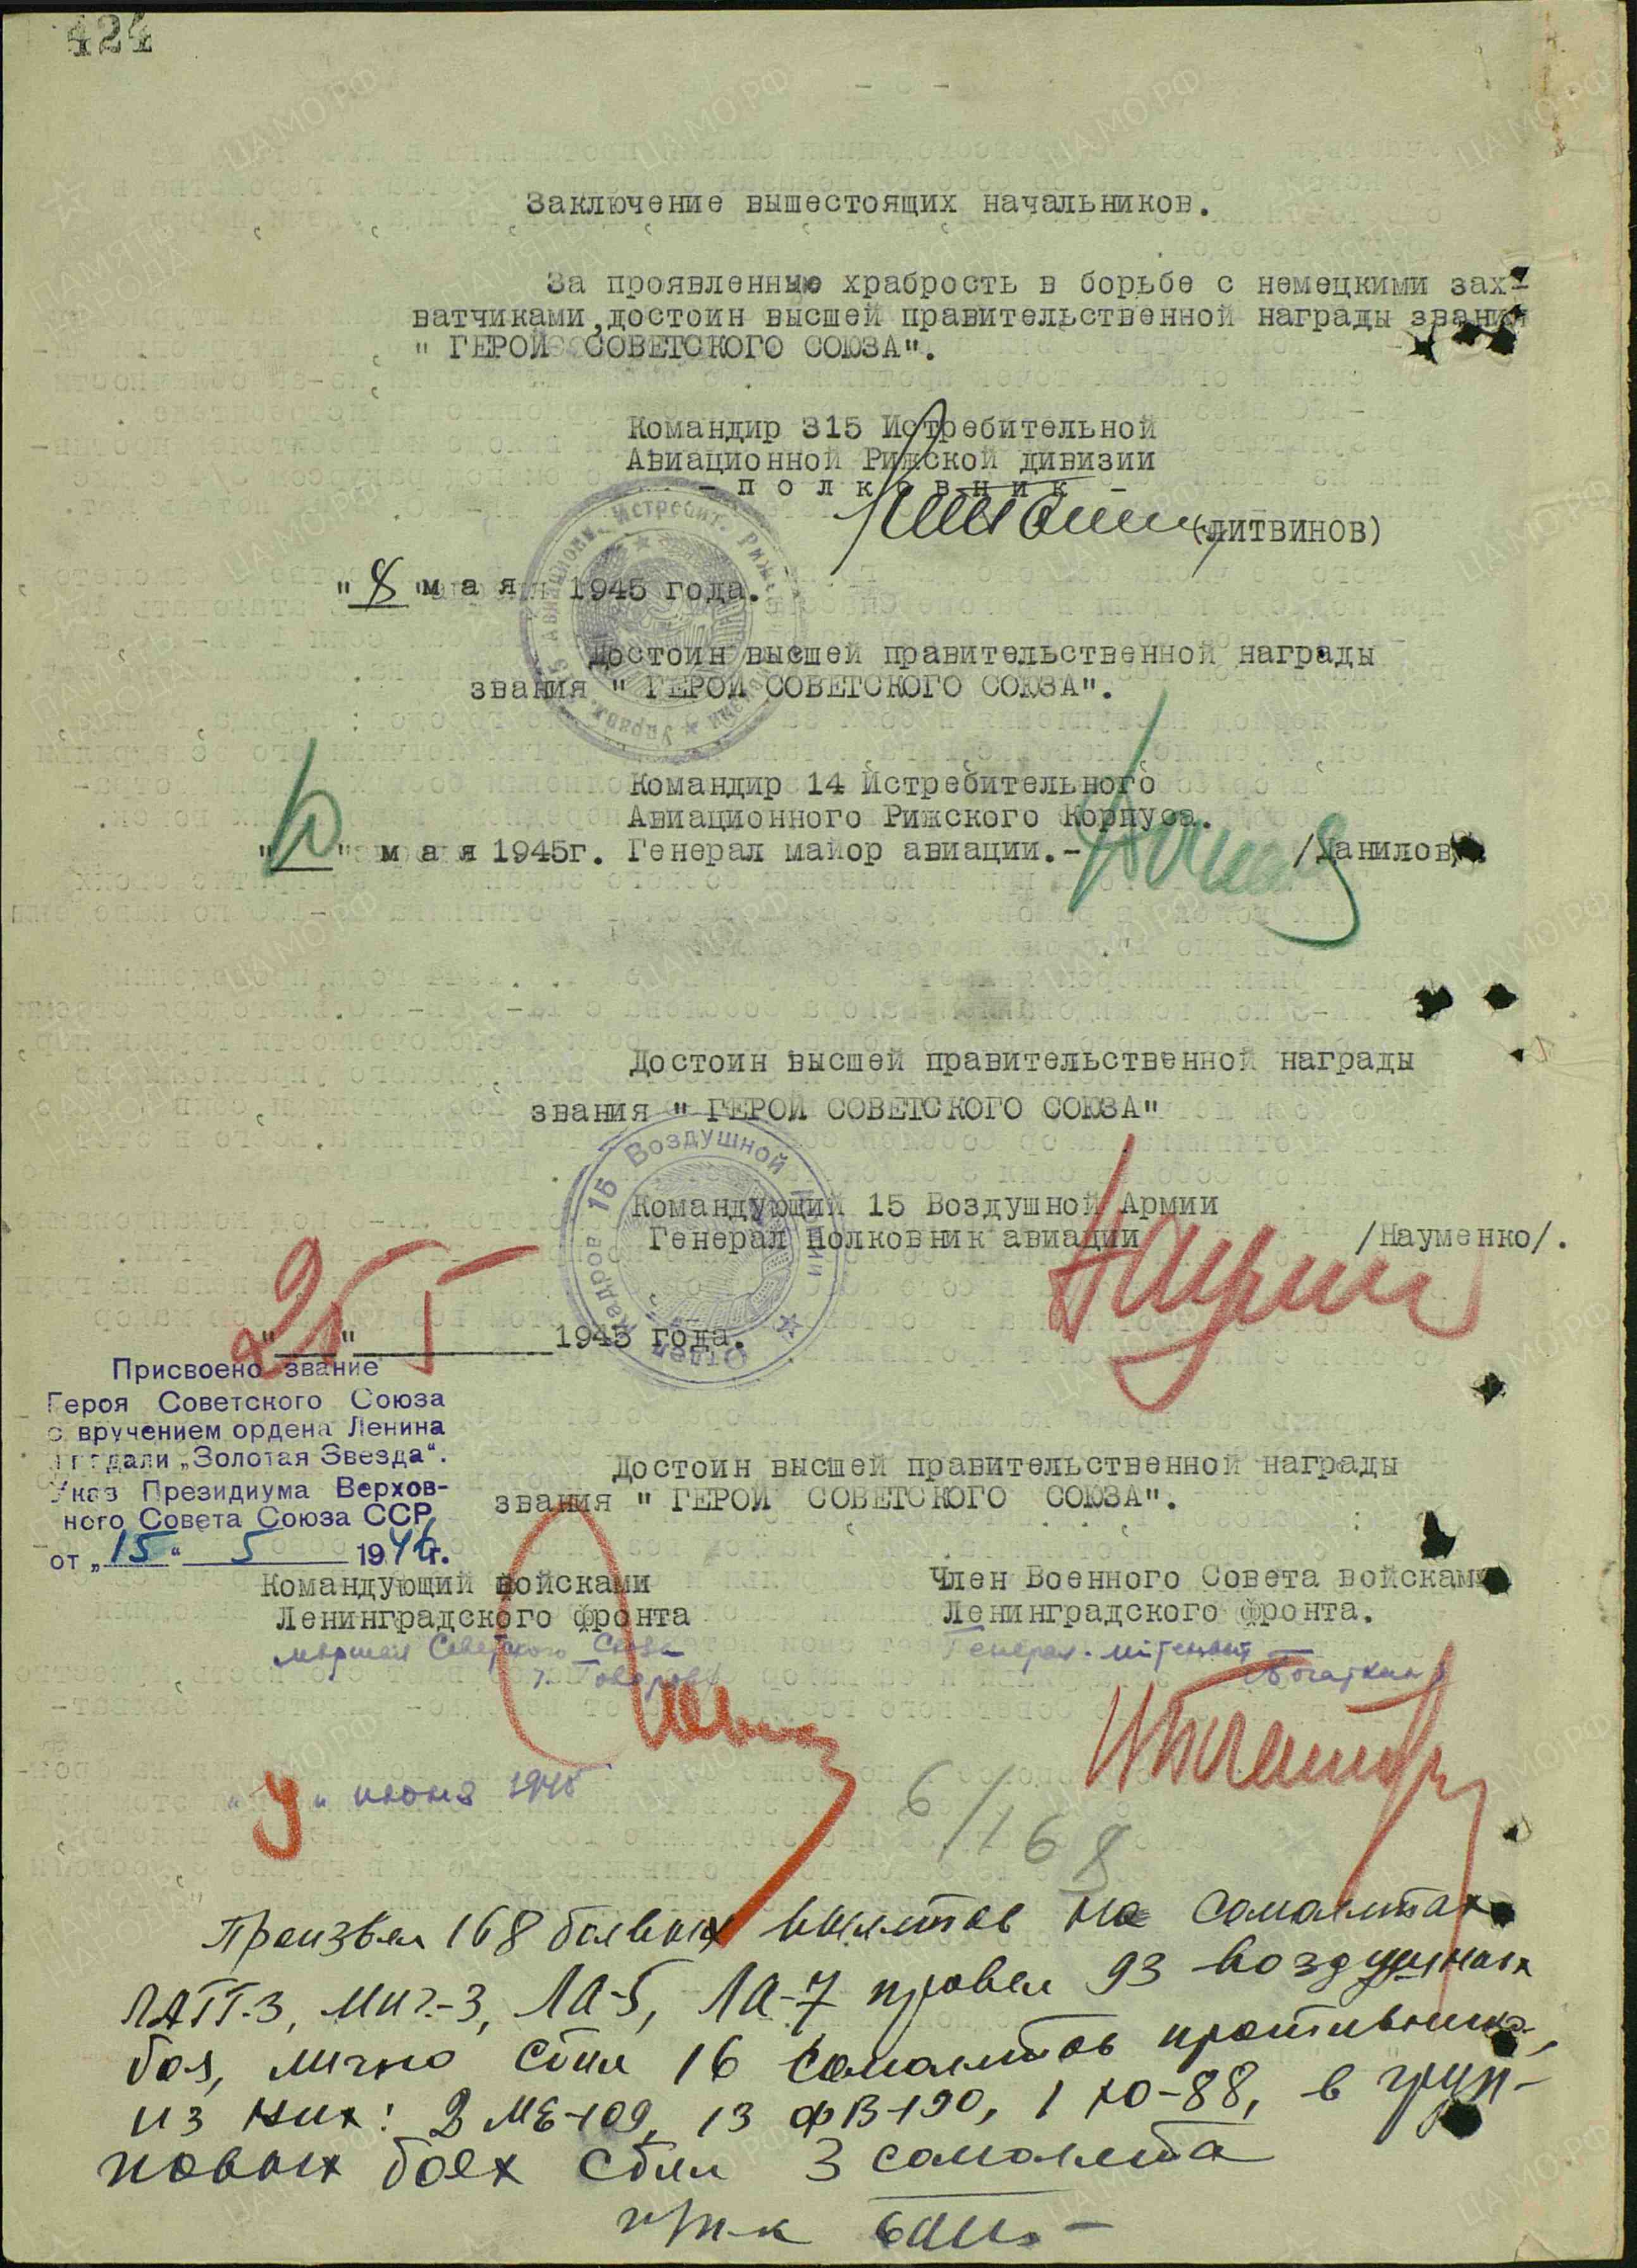 424
Заключение вышестоящих начальников.
За проявленную храбрость в борьбе с немецкими зах-
ватчиками, достоин высшей правительственной награды звания
" ГЕРОЙ СОВЕТСКОГО СОЮЗА".
Командир 315 Истребительной
Авиационной Рижской дивизии
- п о л к о в н и к -
(ЛИТВИНОВ)
"8" м а я 1945 года.
Достоин высшей правительственной награды
звания " ГЕРОЙ СОВЕТСКОГО СОЮЗА".
Командир 14 Истребительного
Авиационного Рижского Корпуса.
" " м а я 1945г. Генерал майор авиации.- /Данилов/
Достоин высшей правительственной награды
звания " ГЕРОЙ СОВЕТСКОГО СОЮЗА"
Отдел кадров 15 Воздушной Армии
Командующий 15 Воздушной Армии
Генерал Полковник авиации /Науменко/.
" " 1945 года.
Присвоено звание
Героя Советского Союза
с вручением ордена Ленина
медали „Золотая Звезда“.
Указ Президиума Верхов-
ного Совета Союза ССР
от „15“ 5 1946г.
Достоин высшей правительственной награды
звания " ГЕРОЙ СОВЕТСКОГО СОЮЗА".
Командующий войсками
Ленинградского фронта
маршал Советского Союза
Говоров
Член Военного Совета войсками
Ленинградского фронта.
Генерал-лейтенант
Богаткин
"9" июня 1945
6/168
Произвел 168 боевых вылетов на самолетах
ЛАГГ-3, Миг-3, ЛА-5, ЛА-7 провел 93 воздушных
боя, лично сбил 16 самолетов противника,
из них: 2 МЕ-109, 13 ФВ-190, 1 Ю-88, в груп-
повых боях сбил 3 самолета